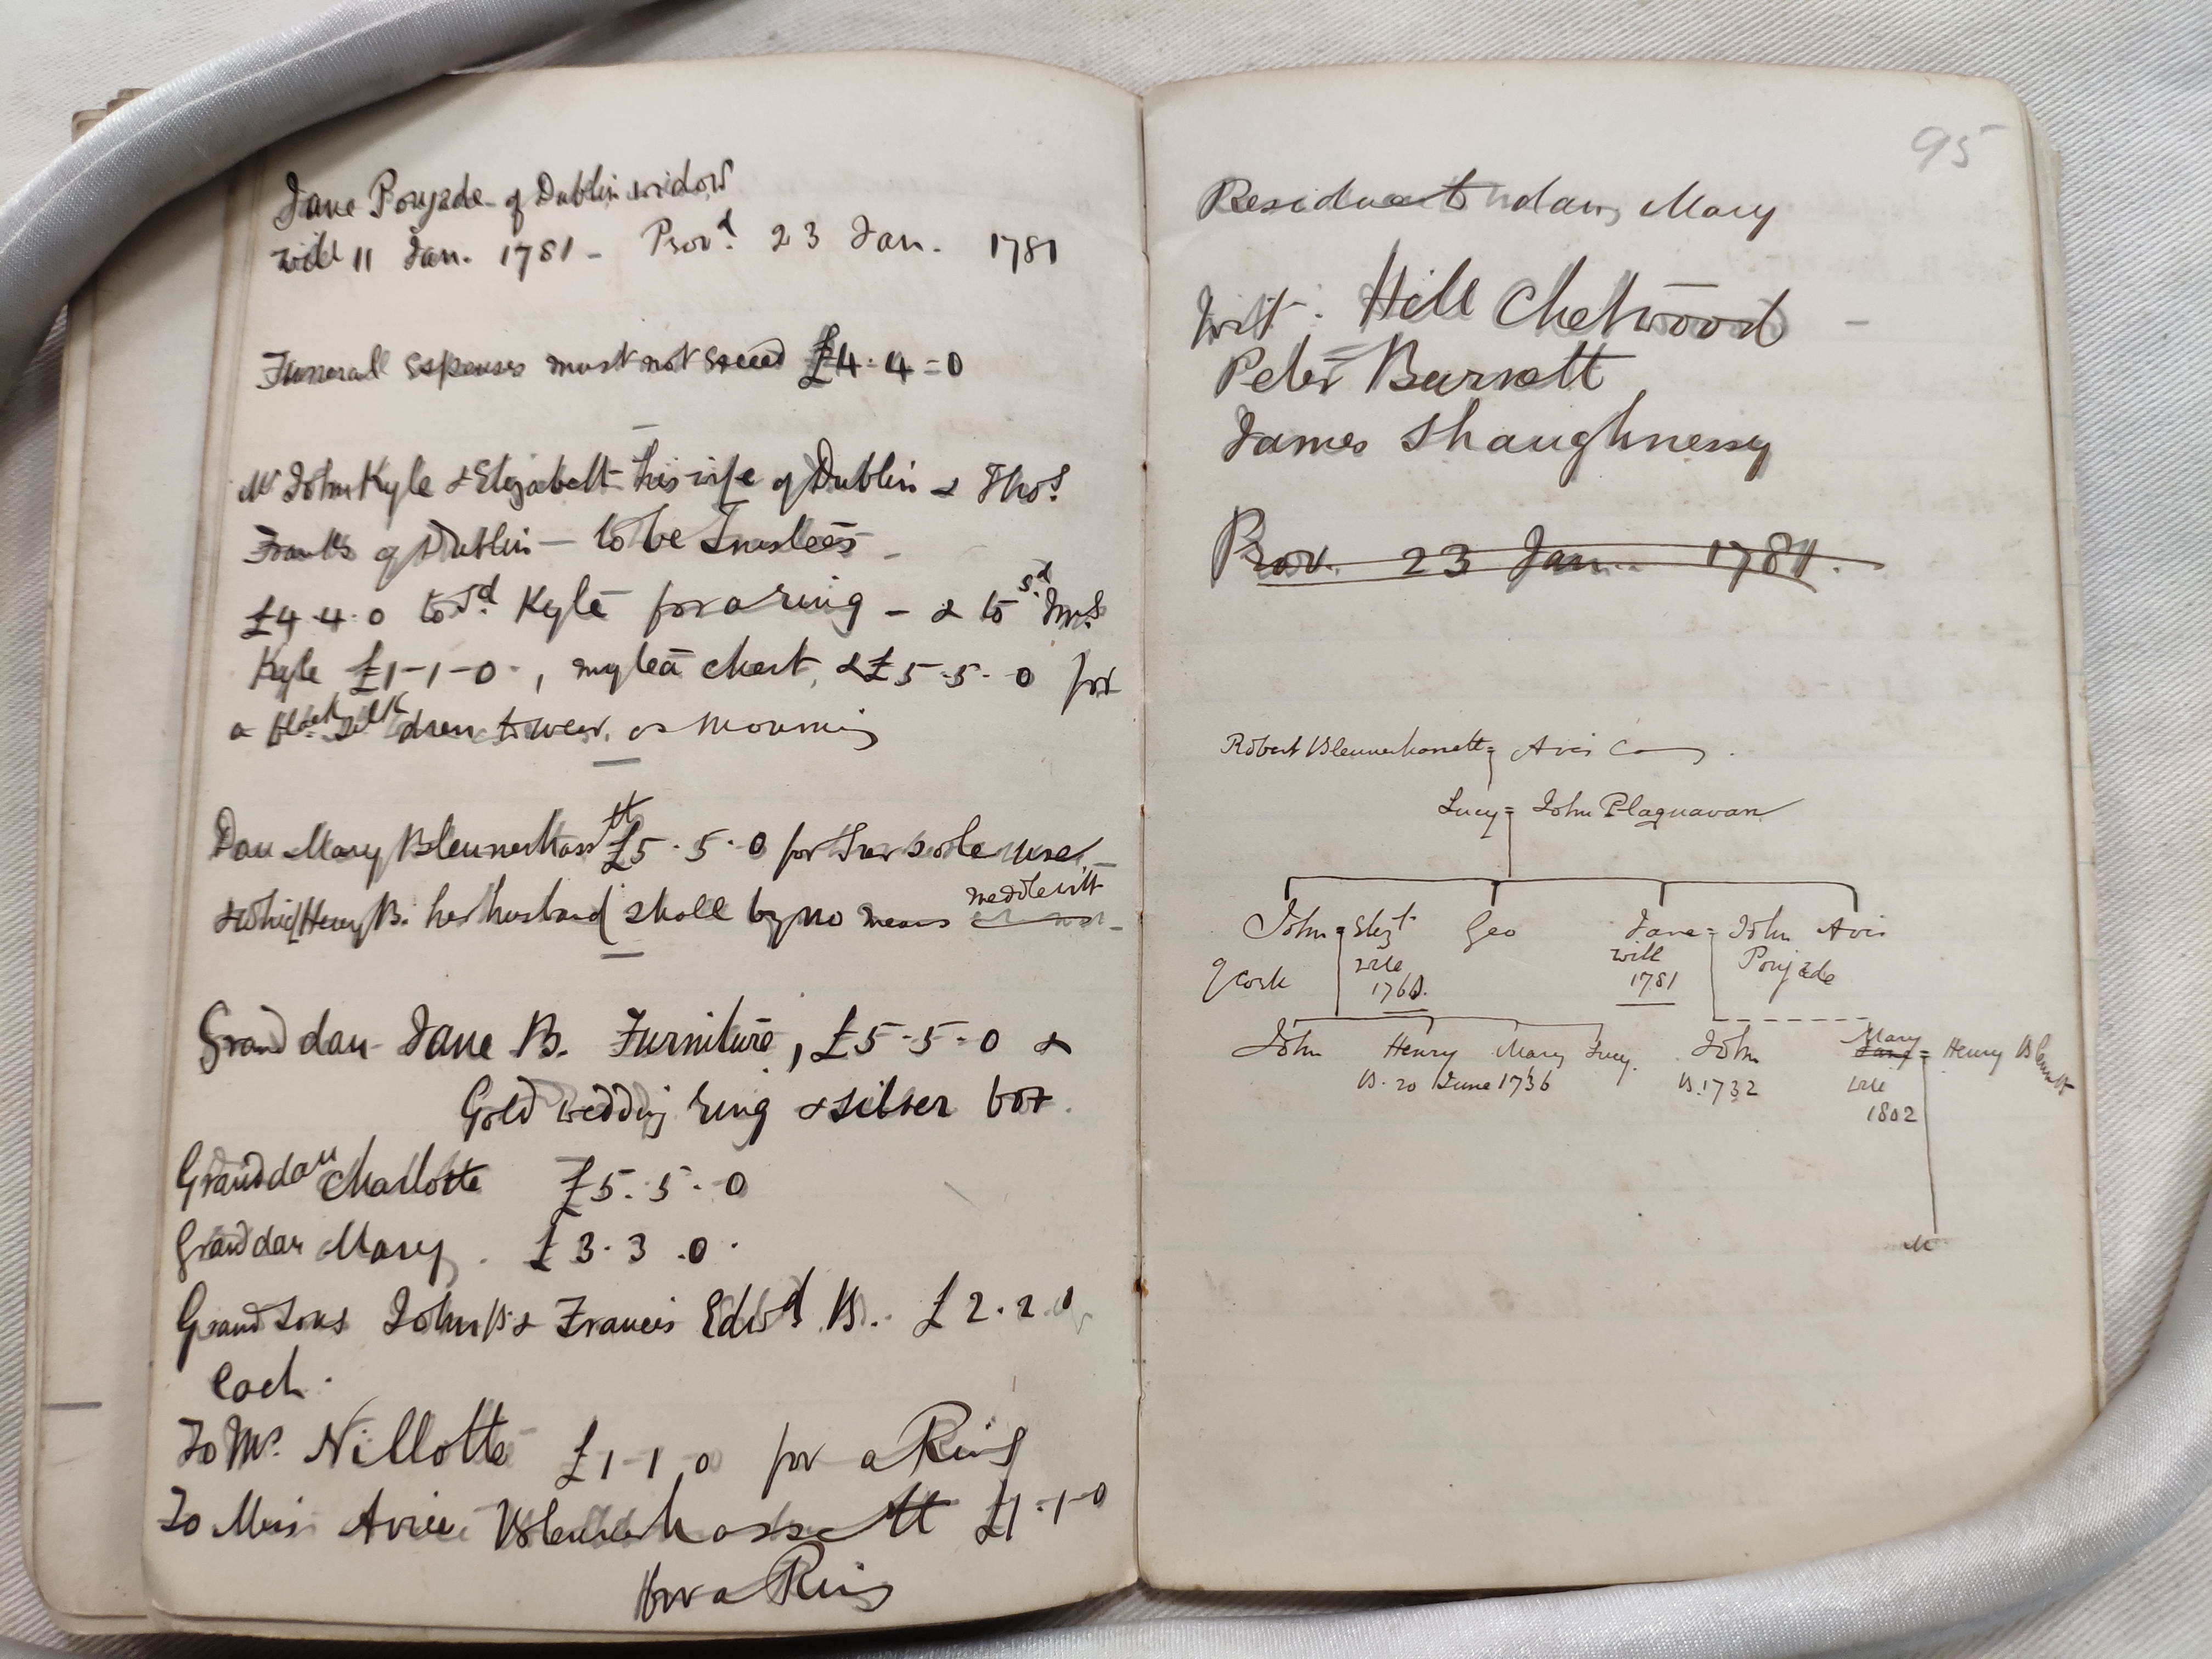 Jane Poujade of Dublin widow
will 11 Jan. 1781 - Prov.d 23 Jan. 1781
Funerall Expenses must not Exceed £4-4=0
Mr John Kyle & Elizabeth his wife of Dublin & Thos.
Franks of Dublin - to be Trustees -
£4.4.0 to sd. Kyle for a ring - & to sd. Mrs.
Kyle £1-1-0-, my tea chest, & £5-5-0 for
a black silk dress to wear as mourning
Dau Mary Blennerhassett £5.5.0 for her sole use -
& which Henry B. her husband shall by no means meddle with
Grand dau Jane B. Furniture, £5-5-0 &
Gold wedding ring & silver box.
Grand dau Charlotte £5.5.0
Grand dau Mary. £3.3.0.
Grand Sons John B. & Francis Edwd B. £2.2.0
each.
To Mr. Nillotte £1-1.0 for a Ring
To Miss Avice Blennerhassett £1-1-0
for a Ring
95
Residue to dau, Mary
Wit: Hill Chetwood -
Peter Burnett
James Shaughnessy
Prov. 23 Jan. 1781.
Robert Blennerhassett = Avis C
Lucy = John Plaquavan
John = Elizt. Geo Jane = John Avis
of Cork will will Poujade
176 1781
John Henry Mary Lucy. John Mary = Henry Blennett
B. 20 June 1736 B. 1732 will
1802
M